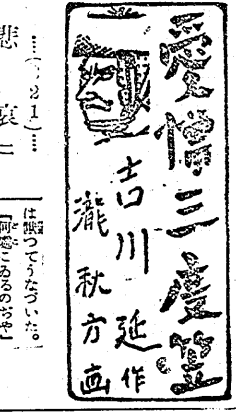 愛憎三度笠
吉川延作
瀧秋方画
…(21)…
悲哀に
は默つてうなづいた。
「何處にゐるのぢや」